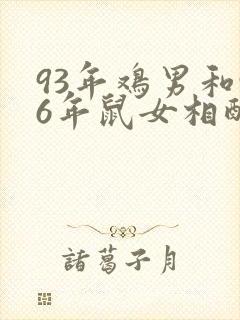 93年鸡男和
6年鼠女相
諸葛子月